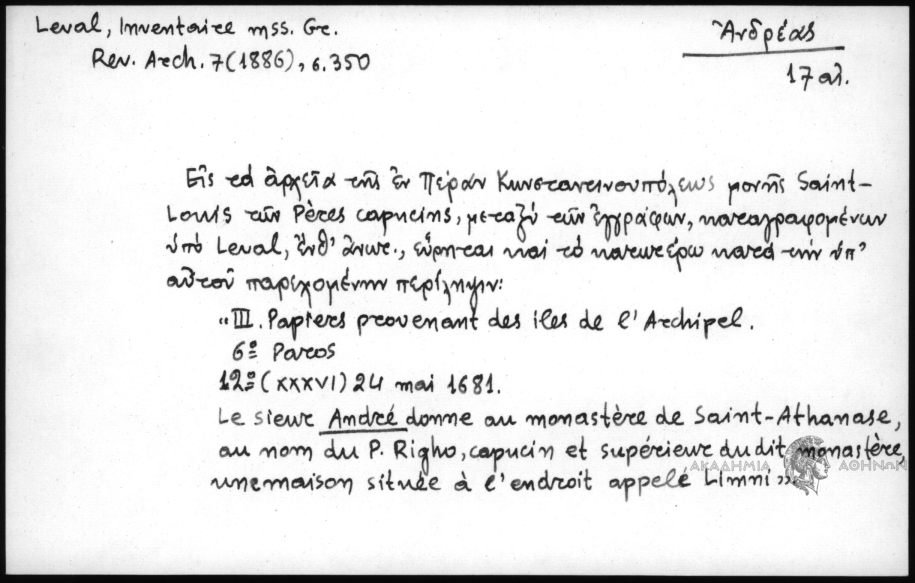 Leval, Inventaire mss. Gr.
Rev. Arch. 7(1886), σ.350
Ἀνδρέας
17 αἰ.
Εἰς τὰ ἀρχεῖα τῆς ἐν Πέραν Κωνσταντινουπόλεως μονῆς Saint-
Louis τῶν Pères capucins, μεταξὺ τῶν ἐγγράφων, καταγραφομένων
ὑπὸ Leval, ἔνθ' ἄνωτ., εὕρηται καὶ τὸ κατωτέρω κατὰ τὴν ὑπ'
αὐτοῦ παρεχομένην περίληψιν:
«III. Papiers provenant des iles de l'Archipel.
6º Paros
12º (XXXVI) 24 mai 1681.
Le sieur André donne au monastère de Saint-Athanase,
au nom du P. Righo, capucin et supérieur dudit monastère,
une maison située à l'endroit appelé Limni»
ΑΚΑΔΗΜΙΑ ΑΘΗΝΩΝ